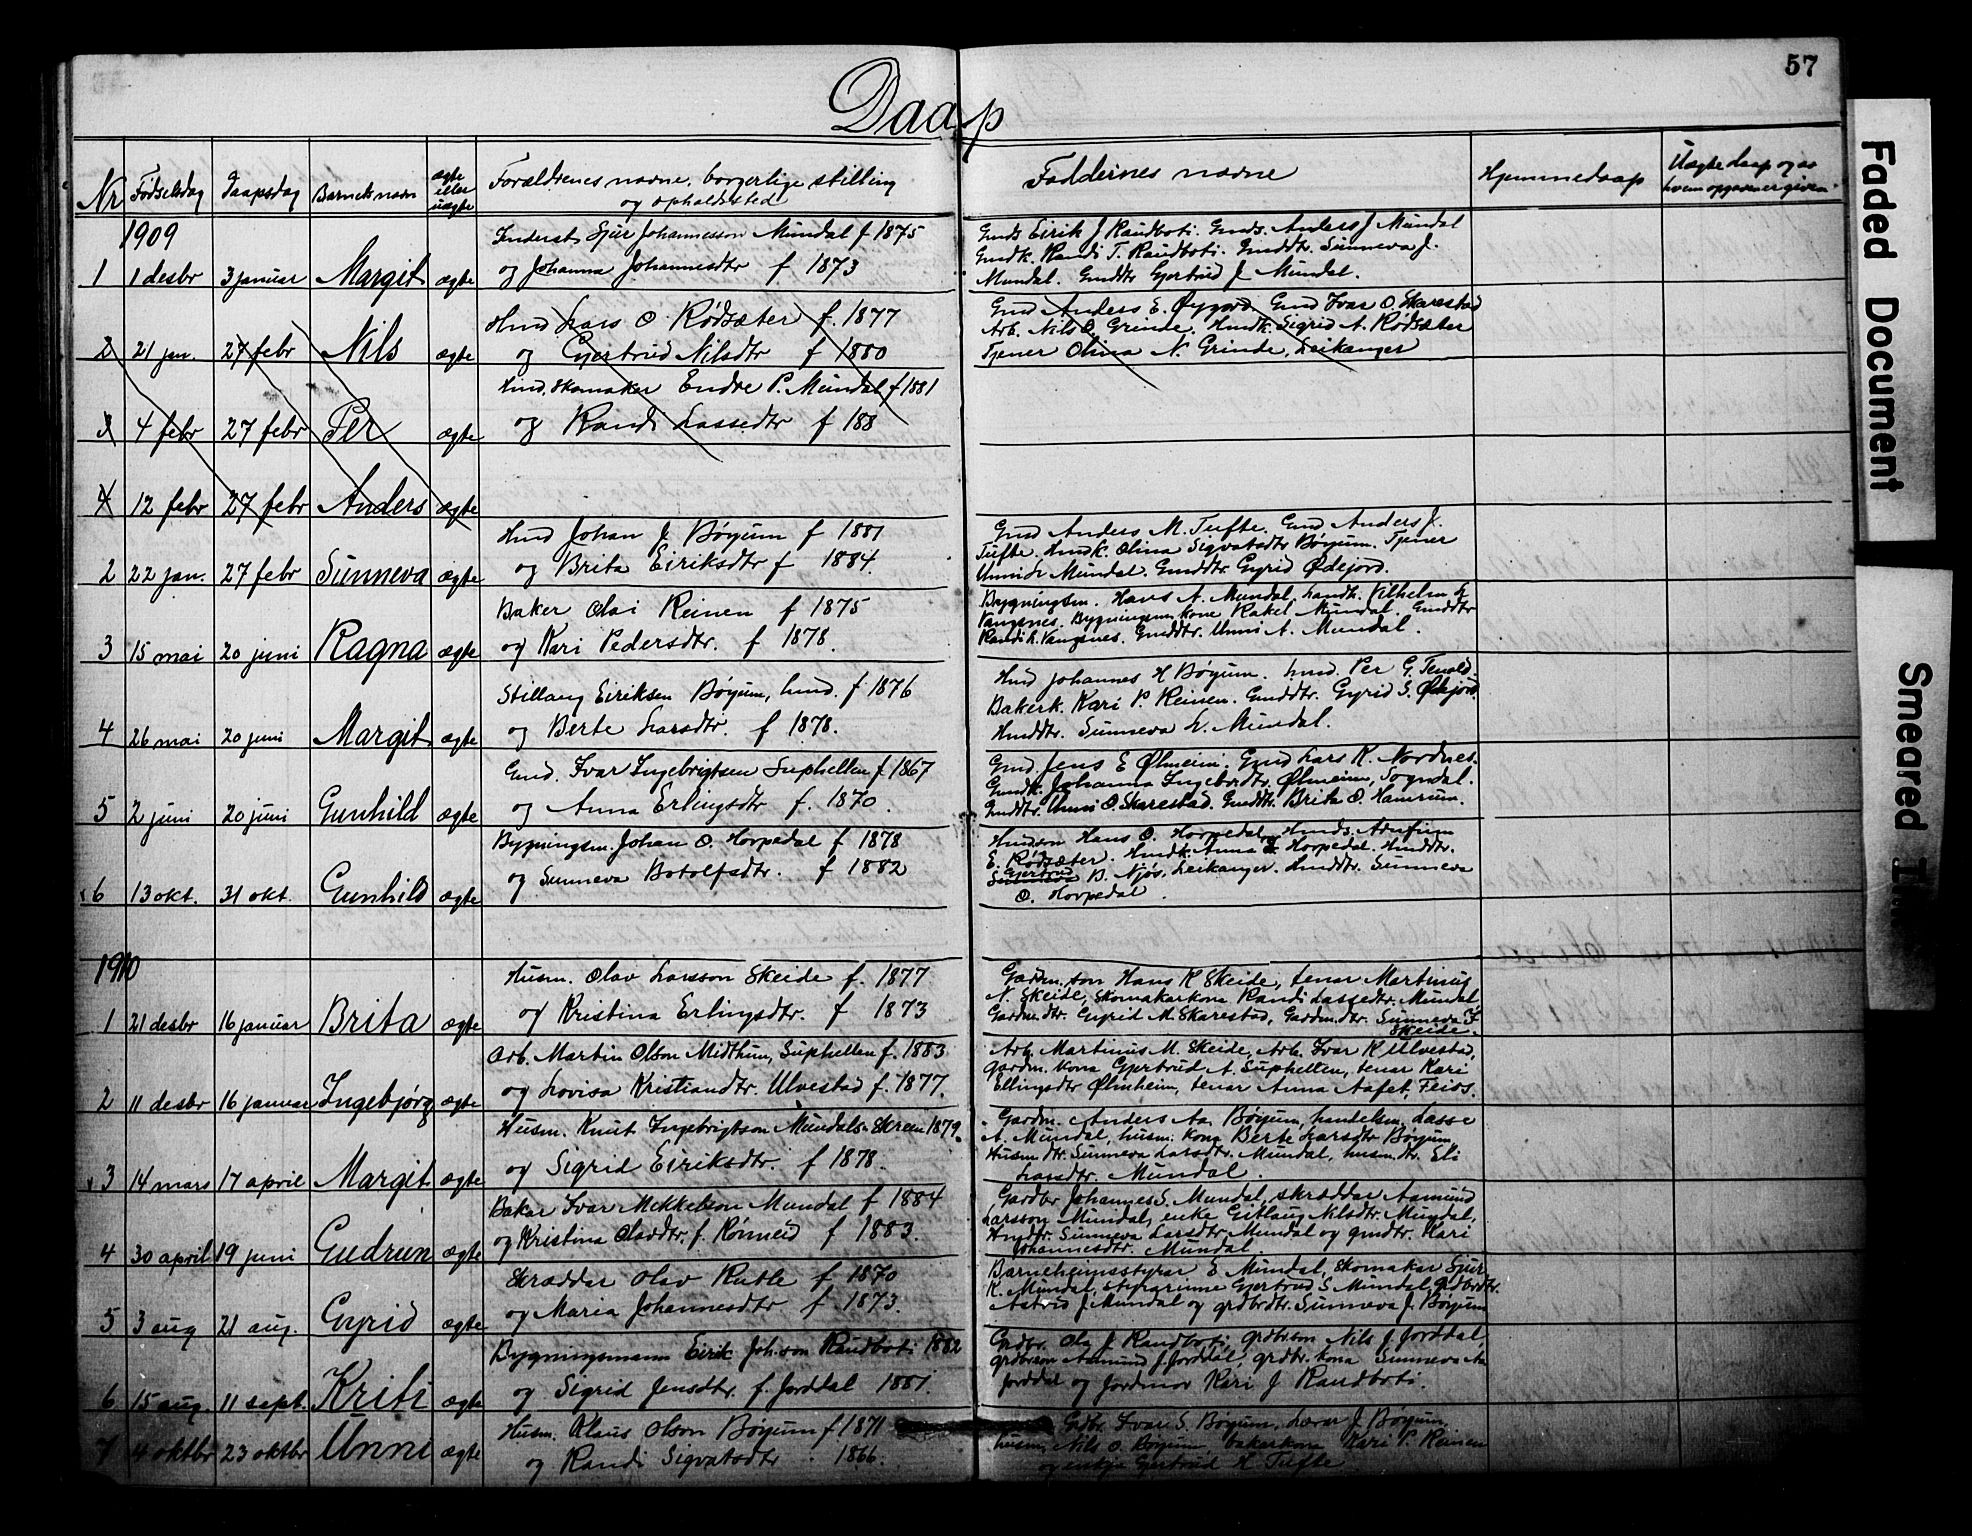 57
Daap
Nr Fødselsdag Daapsdag Barnets navn ægte eller uægte Forældrenes navne, borgerlige stilling og opholdssted Faddernes navne Hjemmedaap Uægte daap og av hvem opgaven er given
1909
1 1 desbr 3 januar Margit ægte
Inderst Sjur Johannesson Mundal f 1875
og Johanna Johannesdtr f 1873
Gmds Eirik J Raudboti. Gmds. Anders J Mundal
Gmdk. Randi T. Raudboti. Gmddtr. Sunneva J.
Mundal. Gmddtr Gjertrud J. Mundal.
2 21 jan. 27 febr Nils ægte
Hmd Lars O. Rødsæter f. 1877
og Gjertrud Nilsdtr f 1880
Gmd Anders E. Øygard. Gmd Ivar O. Skarestad
Arb. Nils O. Grinde. Hmdk. Sigrid A. Rødsæter
Tjener Olina N. Grinde, Leikanger
3 4 febr 27 febr Per ægte
Hmd. Skomaker Endre P. Mundal f 1881
og Randi Lassedtr f 188
4 12 febr 27 febr Anders ægte
2 22 jan. 27 febr Sunneva ægte
Hmd Johan J. Bøyum f 1881
og Brita Eiriksdtr f 1884.
Gmd Anders M. Tufte. Gmd Anders J.
Tufte. Hmdk. Olina Sigvatsdtr Bøyum. Tjener
Unni L Mundal. Gmddtr. Gyrid Ødejord.
3 15 mai 20 juni Ragna ægte
Baker Olai Reinen f 1875
og Kari Pedersdtr. f 1878.
Bygningsm. Hans A. Mundal. Landh. Vilhelm L
Vangsnes. Bygningsm. kone Rakel Mundal. Gmddtr
Randi L. Vangsnes. Gmddtr. Unni A. Mundal.
4 26 mai 20 juni Margit ægte
Stillaug Eiriksen Bøyum, hmd. f 1876
og Berte Larsdtr. f 1878.
Hmd Johannes H Bøyum. hmd. Per G.
Bakerk. Kari P. Reinen. Gmddtr. Gyrid S. Ødejord
Hmddtr. Sunneva L. Mundal.
5 2 juni 20 juni Gunhild ægte
Gmd. Ivar Ingebrigtsen Suphellen f 1867
og Anna Erlingsdtr f. 1870.
Gmd. Jens E Ølmeim. Gmd Lars K. Nordnes.
Gmdk. Johanna Ingebrdtr, Ølmeim, Sogndal.
Gmddtr. Unni O. Skarestad. Gmddtr. Brita O. Hamrum.
6 13 okt. 31 okt. Gunhild ægte
Bygningsm. Johan O. Horpedal f 1878
og Sunneva Botolfsdtr. f 1882
Hmdson Hans O. Horpedal, Hmds. Arnfinn
E. Rødsæter. Hmdk. Anna Horpedal. Hmddtr.
Gjertrud
Sunneva B. Njøs, Leikanger. Hmddtr. Sunneva
O. Horpedal.
1910
1 21 desbr 16 januar Brita ægte
Husm. Olav Larsson Skeide f. 1877
og Kristina Erlingsdtr. f 1873
Gardm. son Hans K Skeide, tenar Martinus
N. Skeide, Skomakarkona Randi Lassedtr. Mundal
Gardm.dtr. Gyrid M. Skarestad, Gardm.dtr. Sunneva
Skeide.
2 11 desbr 16 januar Ingebjørg ægte
Arb. Martin Olson Midthun, Suphellen f. 1883
og Lovisa Kristiandtr. Ulvestad f. 1877.
Arb. Martinus M. Skeide, Arb. Ivar K Ulvestad,
gardm. kona Gjertrud A. Suphellen, tenar Kari
Ellingsdtr Ølmheim, tenar Anna Aafet, Feios.
3 14 mars 17 april Margit ægte
Husm. Knut Ingebrigtson Mundals-Skreen 1879.
og Sigrid Eiriksdtr. f 1878.
Gardm. Anders Aa. Bøyum, handelsm. Lasse
A. Mundal, husm. kona Berte Larsdtr Bøyum,
Husm.dtr. Sunneva Larsdtr. Mundal, husm.dtr. Eli
Lassdtr. Mundal.
4 30 april 19 juni Gudrun ægte
Bakar Ivar Mikkelson Mundal f 1884
og Kristina Olavdtr. f. Rønneid f 1883.
Gardbr Johannes S. Mundal, skræddar Aamund
Larsson Mundal, enke Gitlaug Nilsdtr. Mundal,
Hmdtr. Sunneva Larsdtr. Mundal og gmdtr. Kari
Johannesdtr. Mundal.
5 3 aug 21 aug. Gyrid ægte
Skræddar Olav Rutle f 1870
og Maria Johannesdtr f 1873.
Barneheimsstyrar E Mundal, Skomakar Sjur
K. Mundal, styrarinne Gjertrud S Mundal, grdbrdtr.
Astrid J. Mundal og grdbrdtr. Sunneva J. Bøyum
6 15 aug. 11 sept. Kriti ægte
Bygningsmann Eirik Joh.son Raudboti 1882
og Sigrid Jensdtr. f. Jorddal 1881.
Grdbr. Ole J Raudboti, grdbrson Nils J. Jorddal,
grdbrson Aamund J. Jorddal, grdbr. kona Sunneva Aa
Jorddal og Jordmor Kari J Raudboti.
7 4 oktbr 23 oktbr Unni ægte
Husm. Klaus Olson Bøyum f 1871
og Randi Sigvatsdtr 1866.
Grdbr. Ivar S. Bøyum, Lærar J. Bøyum,
husm. Nils O. Bøyum, bakarkona Kari P. Reinen
og enkja Gjertrud H Tufte
Faded Document
Smeared